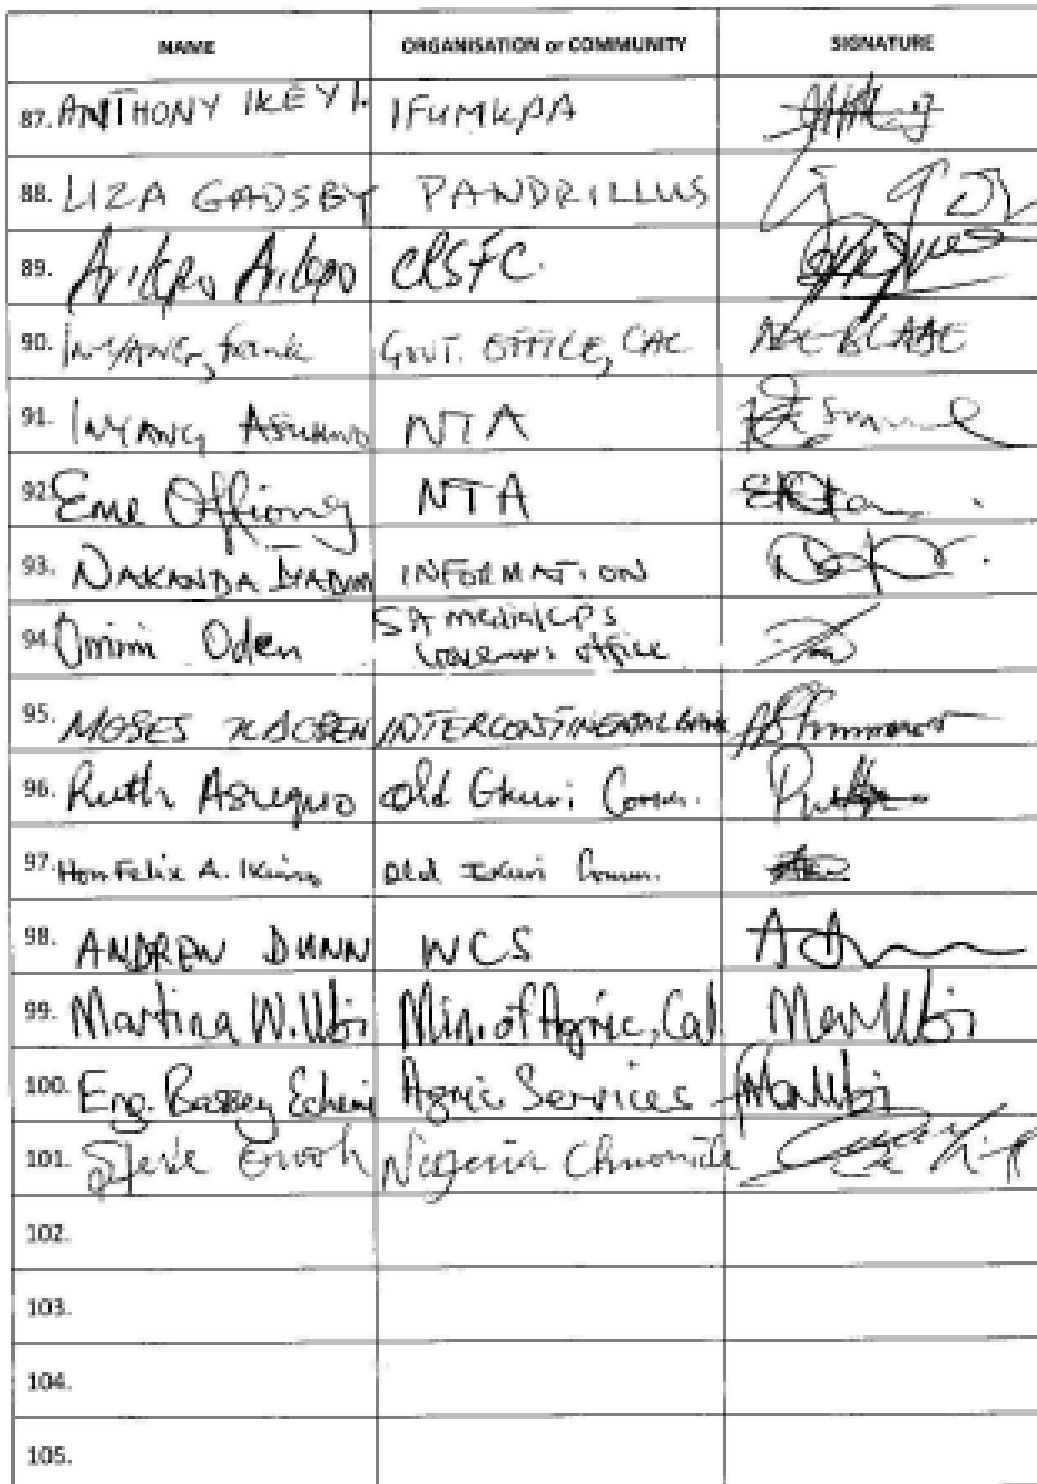 NAME ORGANISATION or COMMUNITY SIGNATURE
87. ANTHONY IKEYI. IFUMKPA
88. LIZA GADSBY PANDRILLUS
89. Arikpo Arikpo CRSFC.
90. INYANG, frank GOVT. OFFICE, CAC
91. INYANG Asuquo NTA
92. Eme Offiong NTA
93. NAKANDA INFORMATION
94. Omini Oden SA media/CPS
Governors office
95. MOSES INTERCONTINENTAL BANK
96. Ruth Asuquo Old Ekuri Comm.
97. Hon Felix A. Old Ekuri Comm.
98. ANDREW DUNN WCS
99. Martina W. Ubi Min. of Agric, Cal MarUbi
100. Eng. Bassey Agric Services
101. Nigeria Chronicle
102.
103.
104.
105.